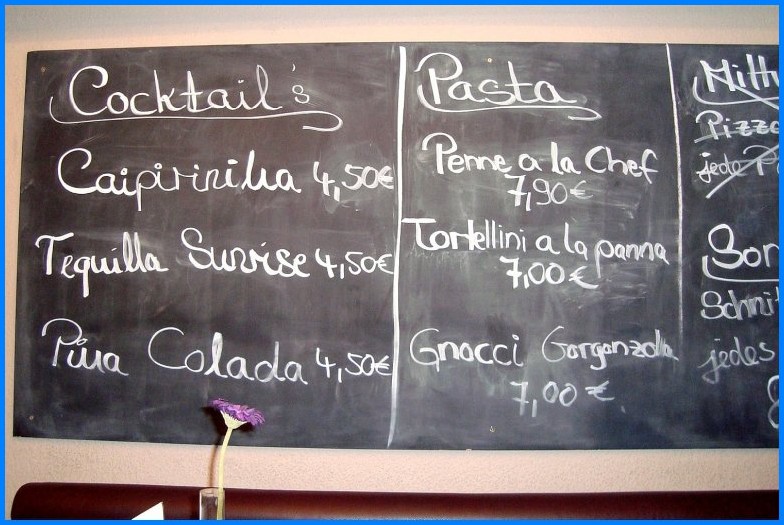 Cocktail's
Caipirinha 4,50€
Tequilla Sunrise 4,50€
Pina Colada 4,50€
Pasta
Penne a la Chef
7,90€
Tortellini a la panna
7,00€
Gnocci Gorgonzola
7,00€
jedes